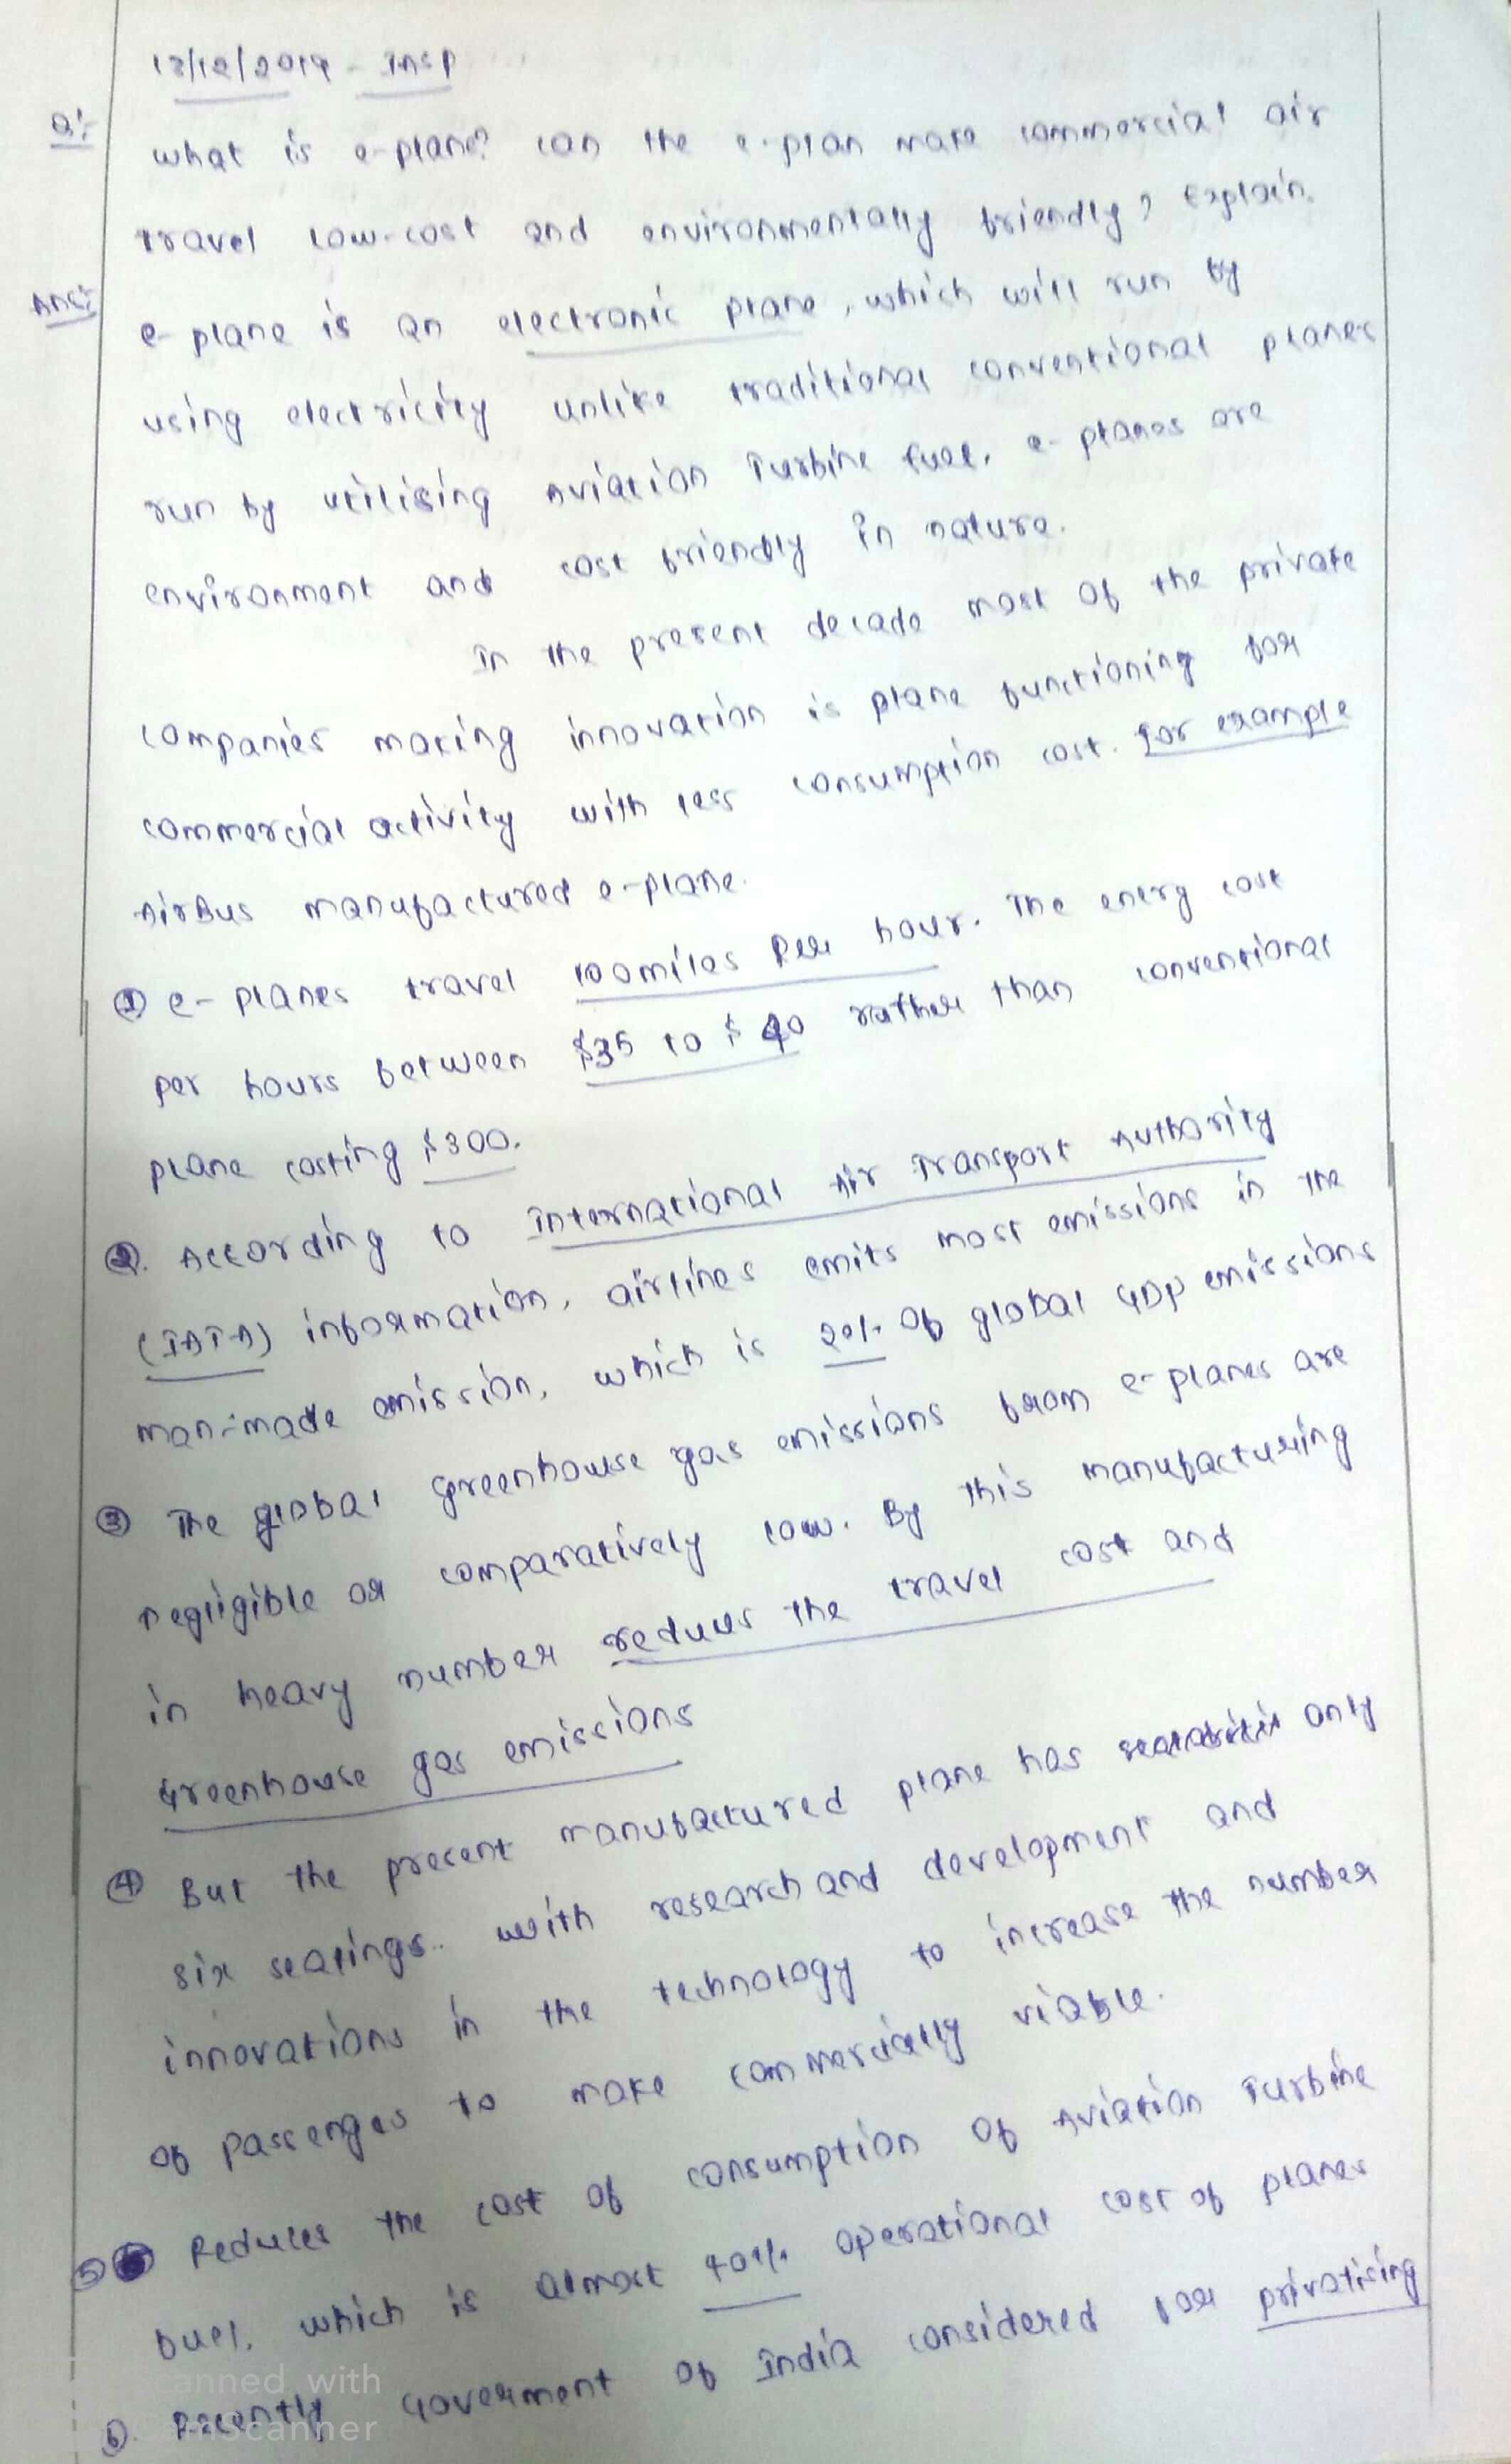 13/12/2019 - Insp
Q:- What is e-plane? Can the e-plan make commercial air
travel low-cost and environmentally friendly? Explain.
Ans:- e-plane is an electronic plane, which will run by
using electricity unlike traditional conventional planes
run by utilising Aviation Turbine fuel. e-planes are
environment and cost friendly in nature.
In the present decade most of the private
companies making innovation is plane functioning for
commercial activity with less consumption cost. For example
AirBus manufactured e-plane.
① e-planes travel 100miles per hour. The energy cost
per hours between $35 to $40 rather than conventional
plane costing $300.
②. According to International Air Transport Authority
(IATA) information, airlines emits most emissions in the
man-made emission, which is 20% of global GDP emissions
③ The global greenhouse gas emissions from e-planes are
negligible or comparatively low. By this manufacturing
in heavy number reduces the travel cost and
Greenhouse gas emissions
④ But the present manufactured plane has only
six seatings.. with research and development and
innovations in the technology to increase the number
of passenges to make commercially viable.
⑤ Reduces the cost of consumption of Aviation Turbine
fuel, which is almost 40% operational cost of planes
⑥. Recently Goverment of India considered for privatising
Scanned with
CamScanner